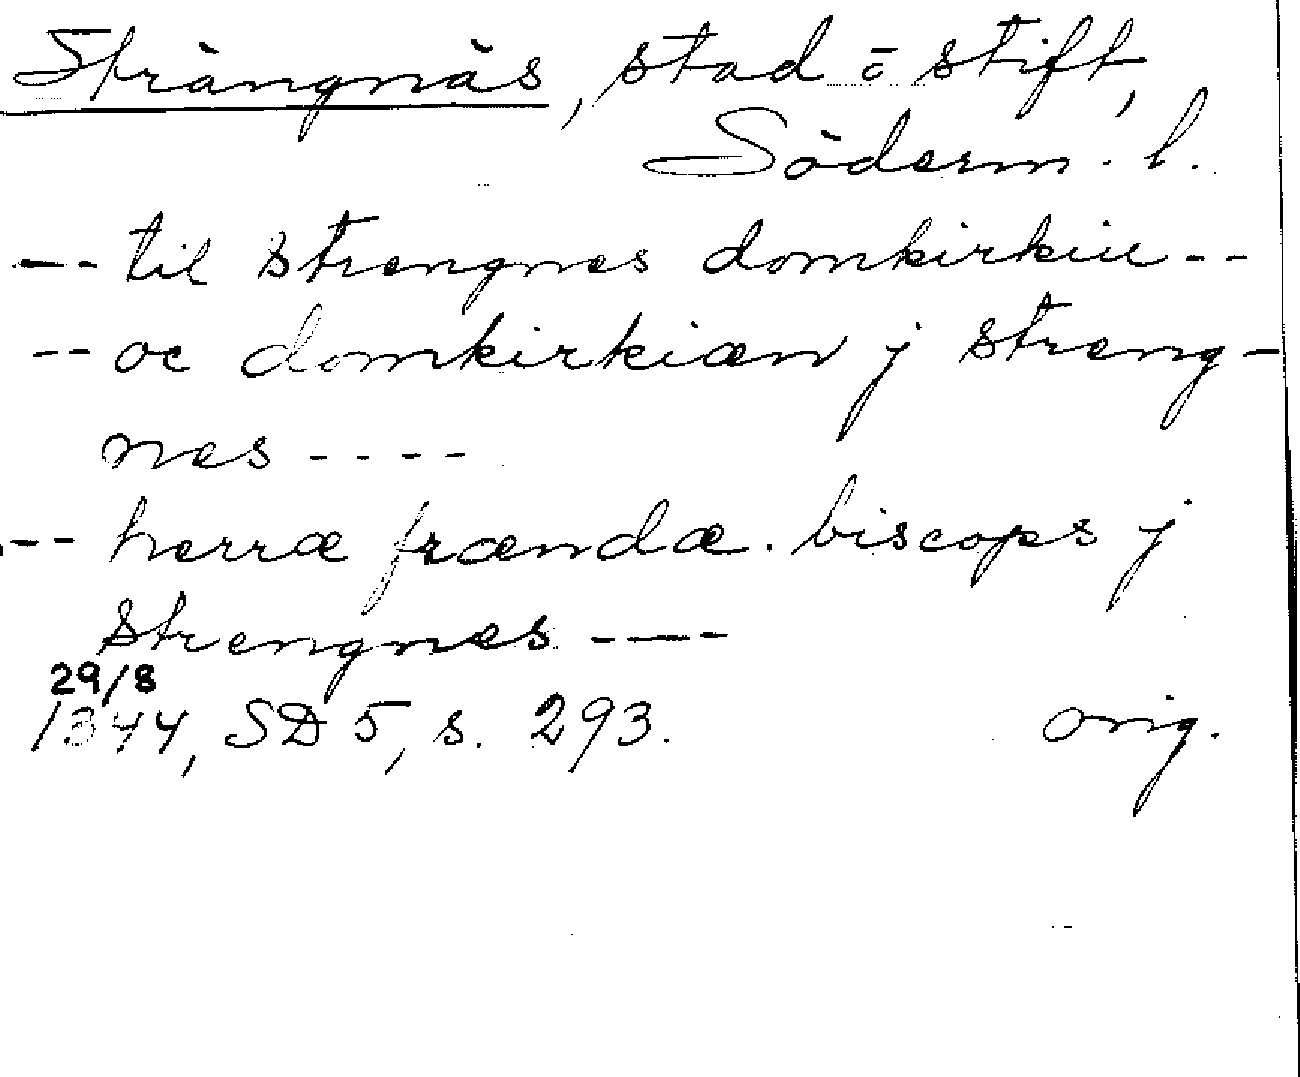 Strängnäs, stad o stift,
Söderm. l.
--til strengnes domkirkiu--
--oc domkirkiæn j streng-
nes----
--herræ frændæ. biscops j
strengnes.----
29/8
1344, SD 5, s. 293. orig.